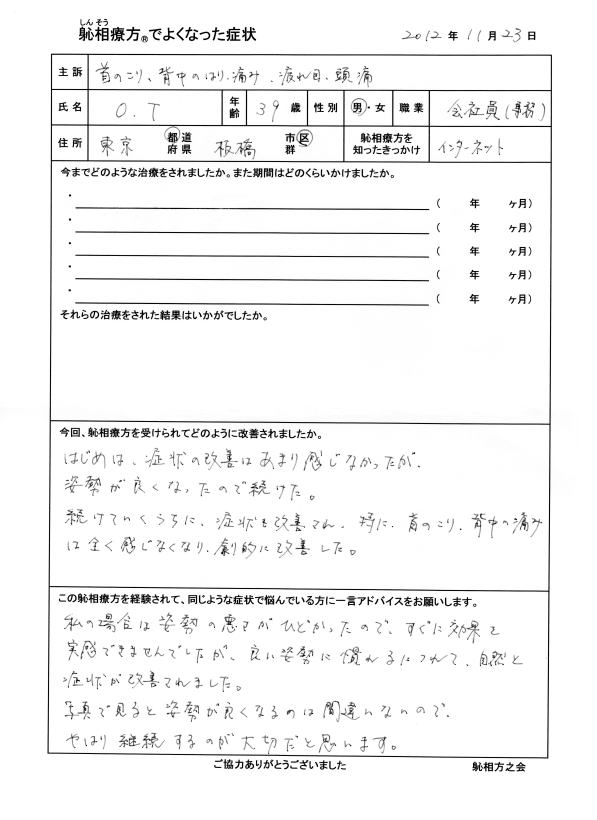 しんそう
躰相療方®でよくなった症状 2012年11月23日
主訴 首のこり、背中のはり・痛み、疲れ目、頭痛
氏名 O.T 年齢 39歳 性別 男・女 職業 会社員(事務)
住所 東京 都道府県 板橋 市区群 躰相療方を知ったきっかけ インターネット
今までどのような治療をされましたか。また期間はどのくらいかけましたか。
・ ( 年 ヶ月)
・ ( 年 ヶ月)
・ ( 年 ヶ月)
・ ( 年 ヶ月)
・ ( 年 ヶ月)
それらの治療をされた結果はいかがでしたか。
今回、躰相療方を受けられてどのように改善されましたか。
はじめは、症状の改善はあまり感じなかったが、
姿勢が良くなったので続けた。
続けていくうちに、症状も改善され、特に、首のこり、背中の痛み
は全く感じなくなり、劇的に改善した。
この躰相療方を経験されて、同じような症状で悩んでいる方に一言アドバイスをお願いします。
私の場合は姿勢の悪さがひどかったので、すぐに効果を
実感できませんでしたが、良い姿勢に慣れるにつれて、自然と
症状が改善されました。
写真で見ると姿勢が良くなるのは間違いないので、
やはり継続するのが大切だと思います。
ご協力ありがとうございました 躰相方之会